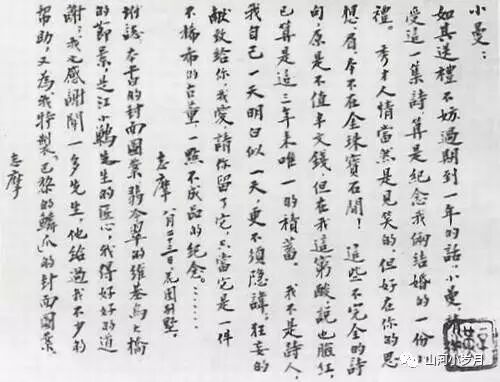 小曼：
如其送禮不妨過期到一年的話，小曼，請你收
受這一集詩，算是紀念我倆結婚的一份小
禮。秀才人情當然是見笑的，但好在你的思
想，眉，本不在金珠寶石間！這些不完全的詩
句，原是不值半文錢，但在我這窮酸，說也臉紅，
已算是這三年來唯一的積蓄。我不是詩人，
我自己一天明白似一天，更不須隱諱，狂妄的
獻致給你，我愛，請你留了它，只當它是一件
不稀希的古董，一點不成品的紀念。……
志摩 八月二十三日，花園別墅。
附誌 本書的封面圖案翡冷翠的維基烏大橋
的節景是江小鶼先生的匠心，我得好好的道
謝；我也感謝聞一多先生，他給過我不少的
幫助，又為我特製巴黎的鱗爪的封面圖案
志摩
山河小岁月